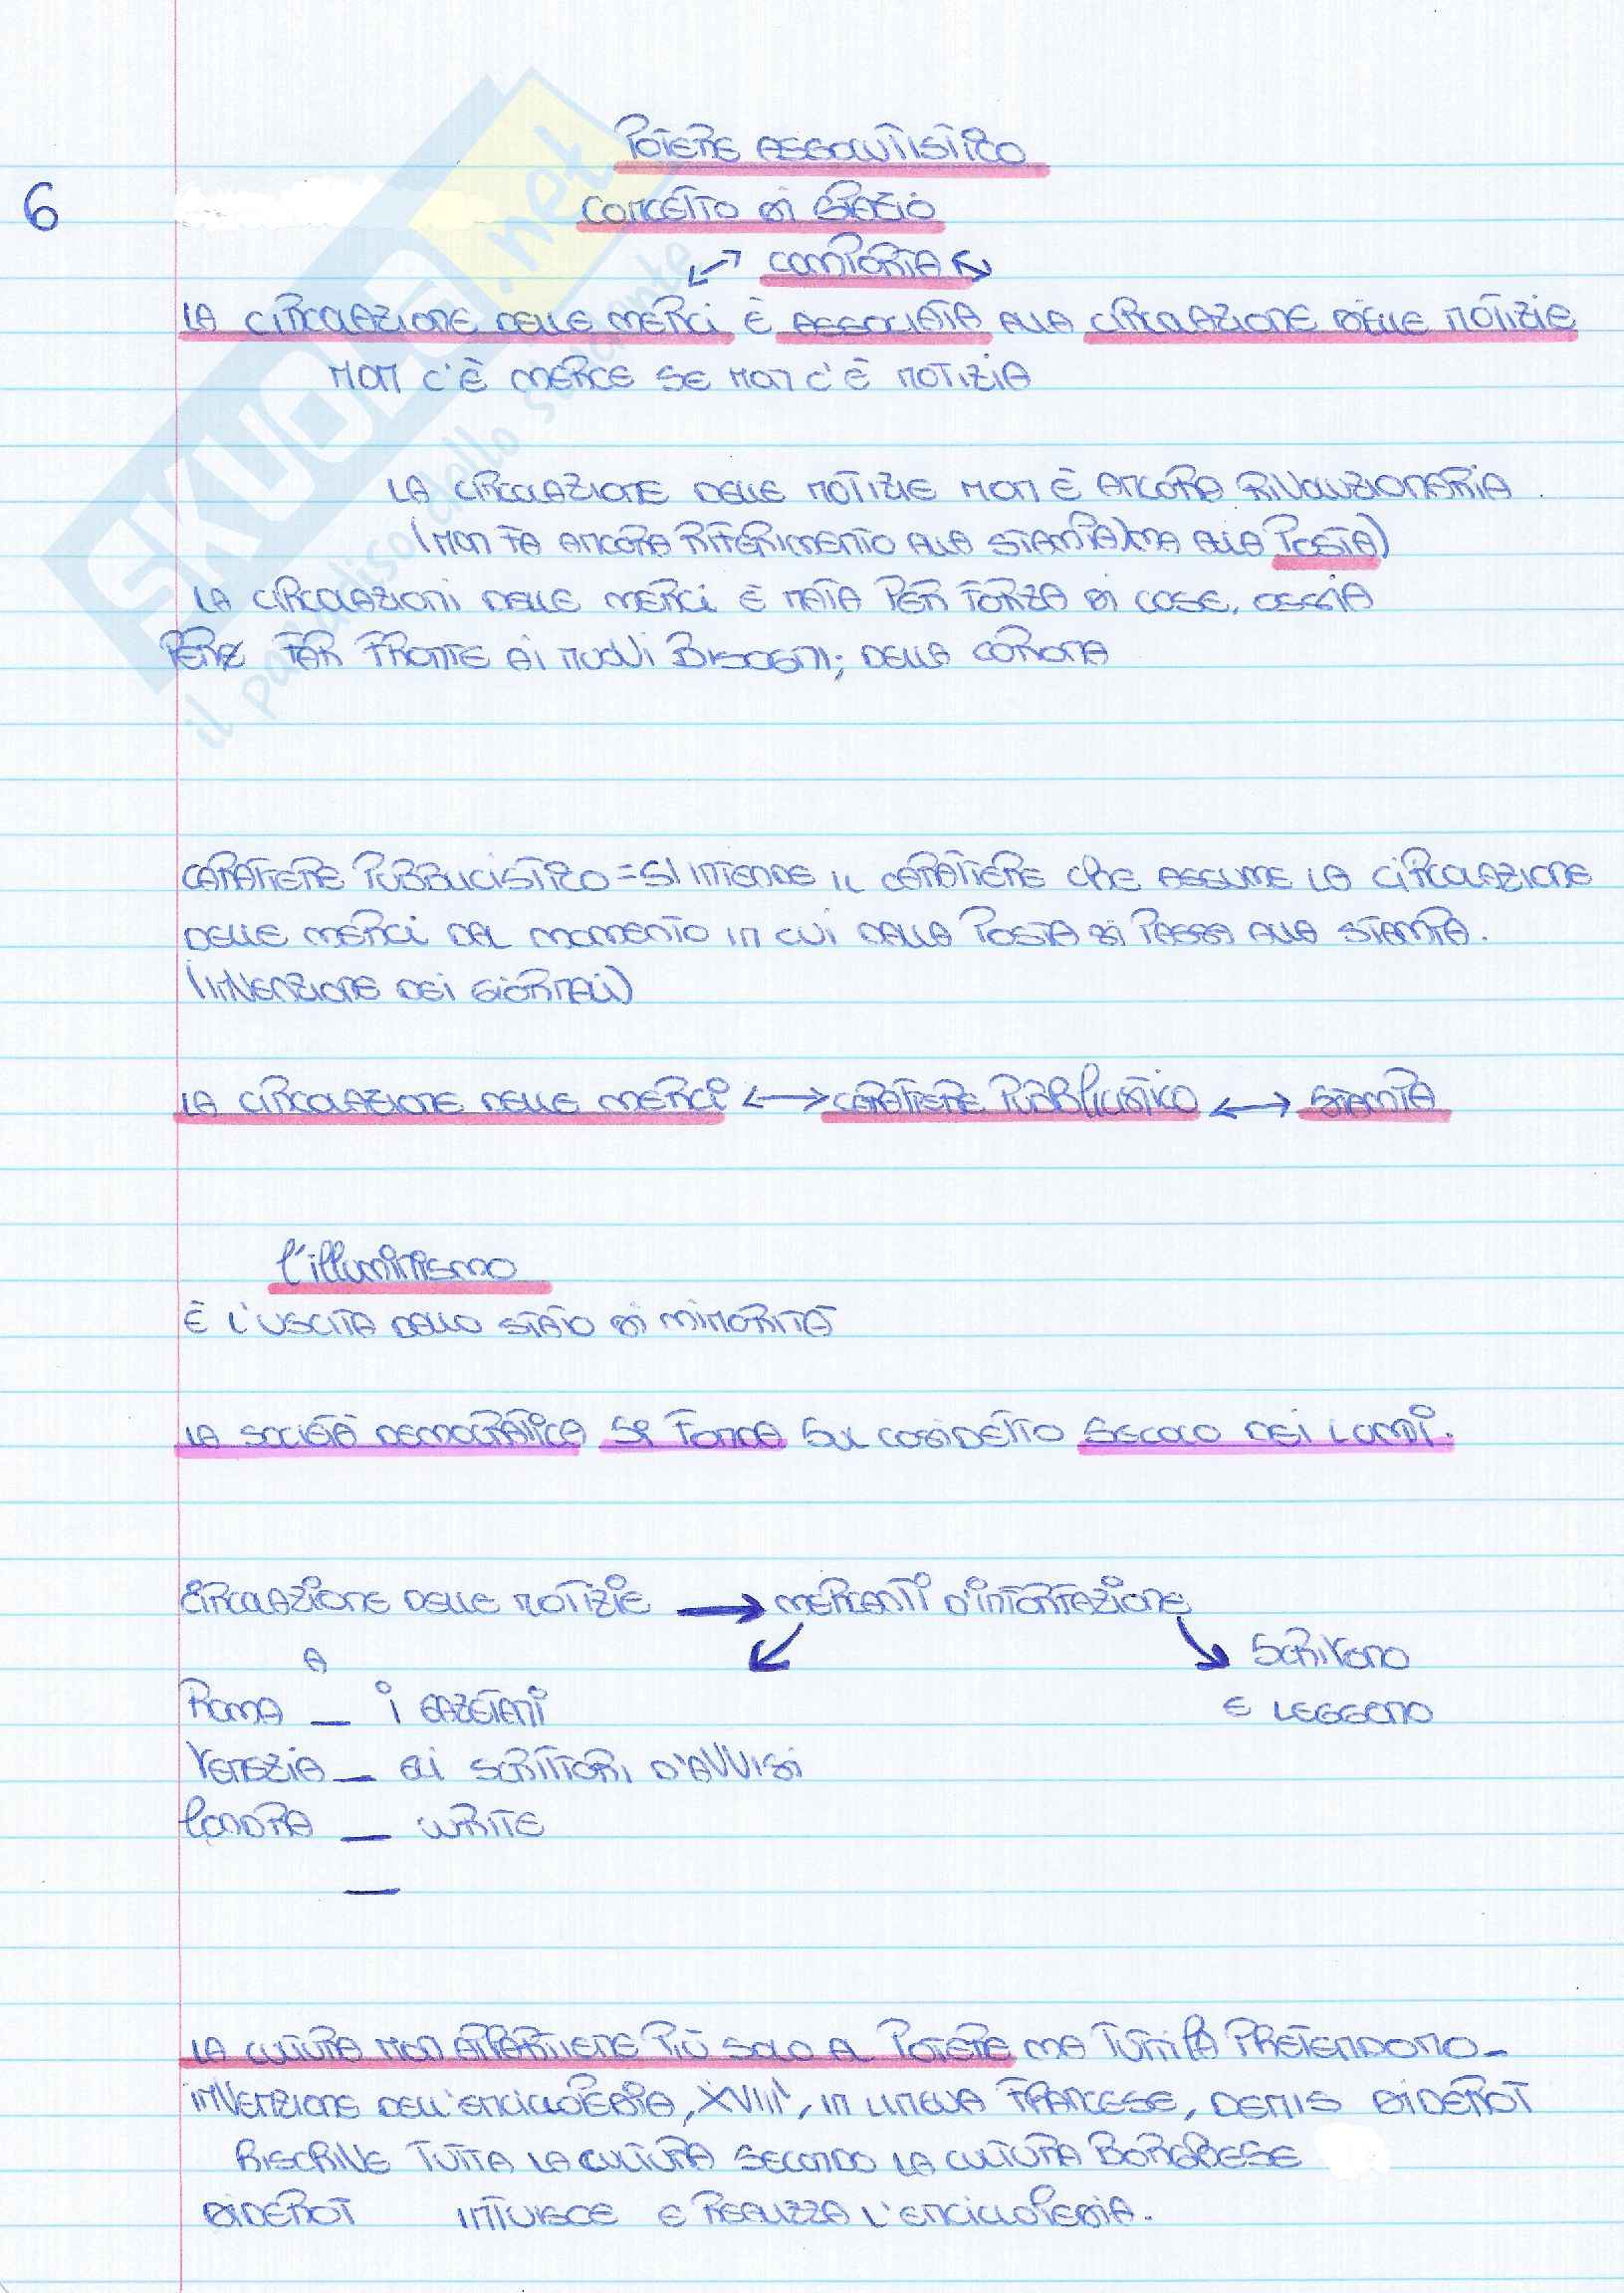 POTERE ASSOLUTISTICO
6
CONCETTO DI STATO
COMPORTA
LA CIRCOLAZIONE DELLE MERCI È ASSOCIATA ALLA CIRCOLAZIONE DELLE NOTIZIE
NON C'È MERCE SE NON C'È NOTIZIA
LA CIRCOLAZIONE DELLE NOTIZIE NON È ANCORA RIVOLUZIONARIA
(NON FA ANCORA RIFERIMENTO ALLA STAMPA) MA ALLA POSTA)
LA CIRCOLAZIONI DELLE MERCI È NATA PER FORZA DI COSE, OSSIA
PER FAR FRONTE AI NUOVI BISOGNI; DELLA CORONA
CARATTERE PUBBLICISTICO = SI INTENDE IL CARATTERE CHE ASSUME LA CIRCOLAZIONE
DELLE MERCI DAL MOMENTO IN CUI DALLA POSTA SI PASSA ALLA STAMPA.
(INVENZIONE DEI GIORNALI)
LA CIRCOLAZIONE DELLE MERCI ↔ CARATTERE PUBBLICISTICO ↔ STAMPA
l'illuminismo
È L'USCITA DALLO STATO DI MINORITÀ
LA SOCIETÀ DEMOCRATICA SI FONDA SUL COSIDETTO SECOLO DEI LUMI.
CIRCOLAZIONE DELLE NOTIZIE → MERCANTI D'INFORMAZIONE
A
SCRIVONO
ROMA _ I GAZZETANTI
E LEGGONO
VENEZIA _ GLI SCRITTORI D'AVVISI
LONDRA _ WRITE
_
LA CULTURA NON APPARTIENE PIÙ SOLO AL POTERE MA TUTTI LA PRETENDONO_
INVENZIONE DELL'ENCICLOPEDIA, XVIII, IN LINGUA FRANCESE, DENIS DIDEROT
RISCRIVE TUTTA LA CULTURA SECONDO LA CULTURA BORGHESE
DIDEROT INTUISCE E REALIZZA L'ENCICLOPEDIA.
SKUOLA.net
il paradiso dello studente